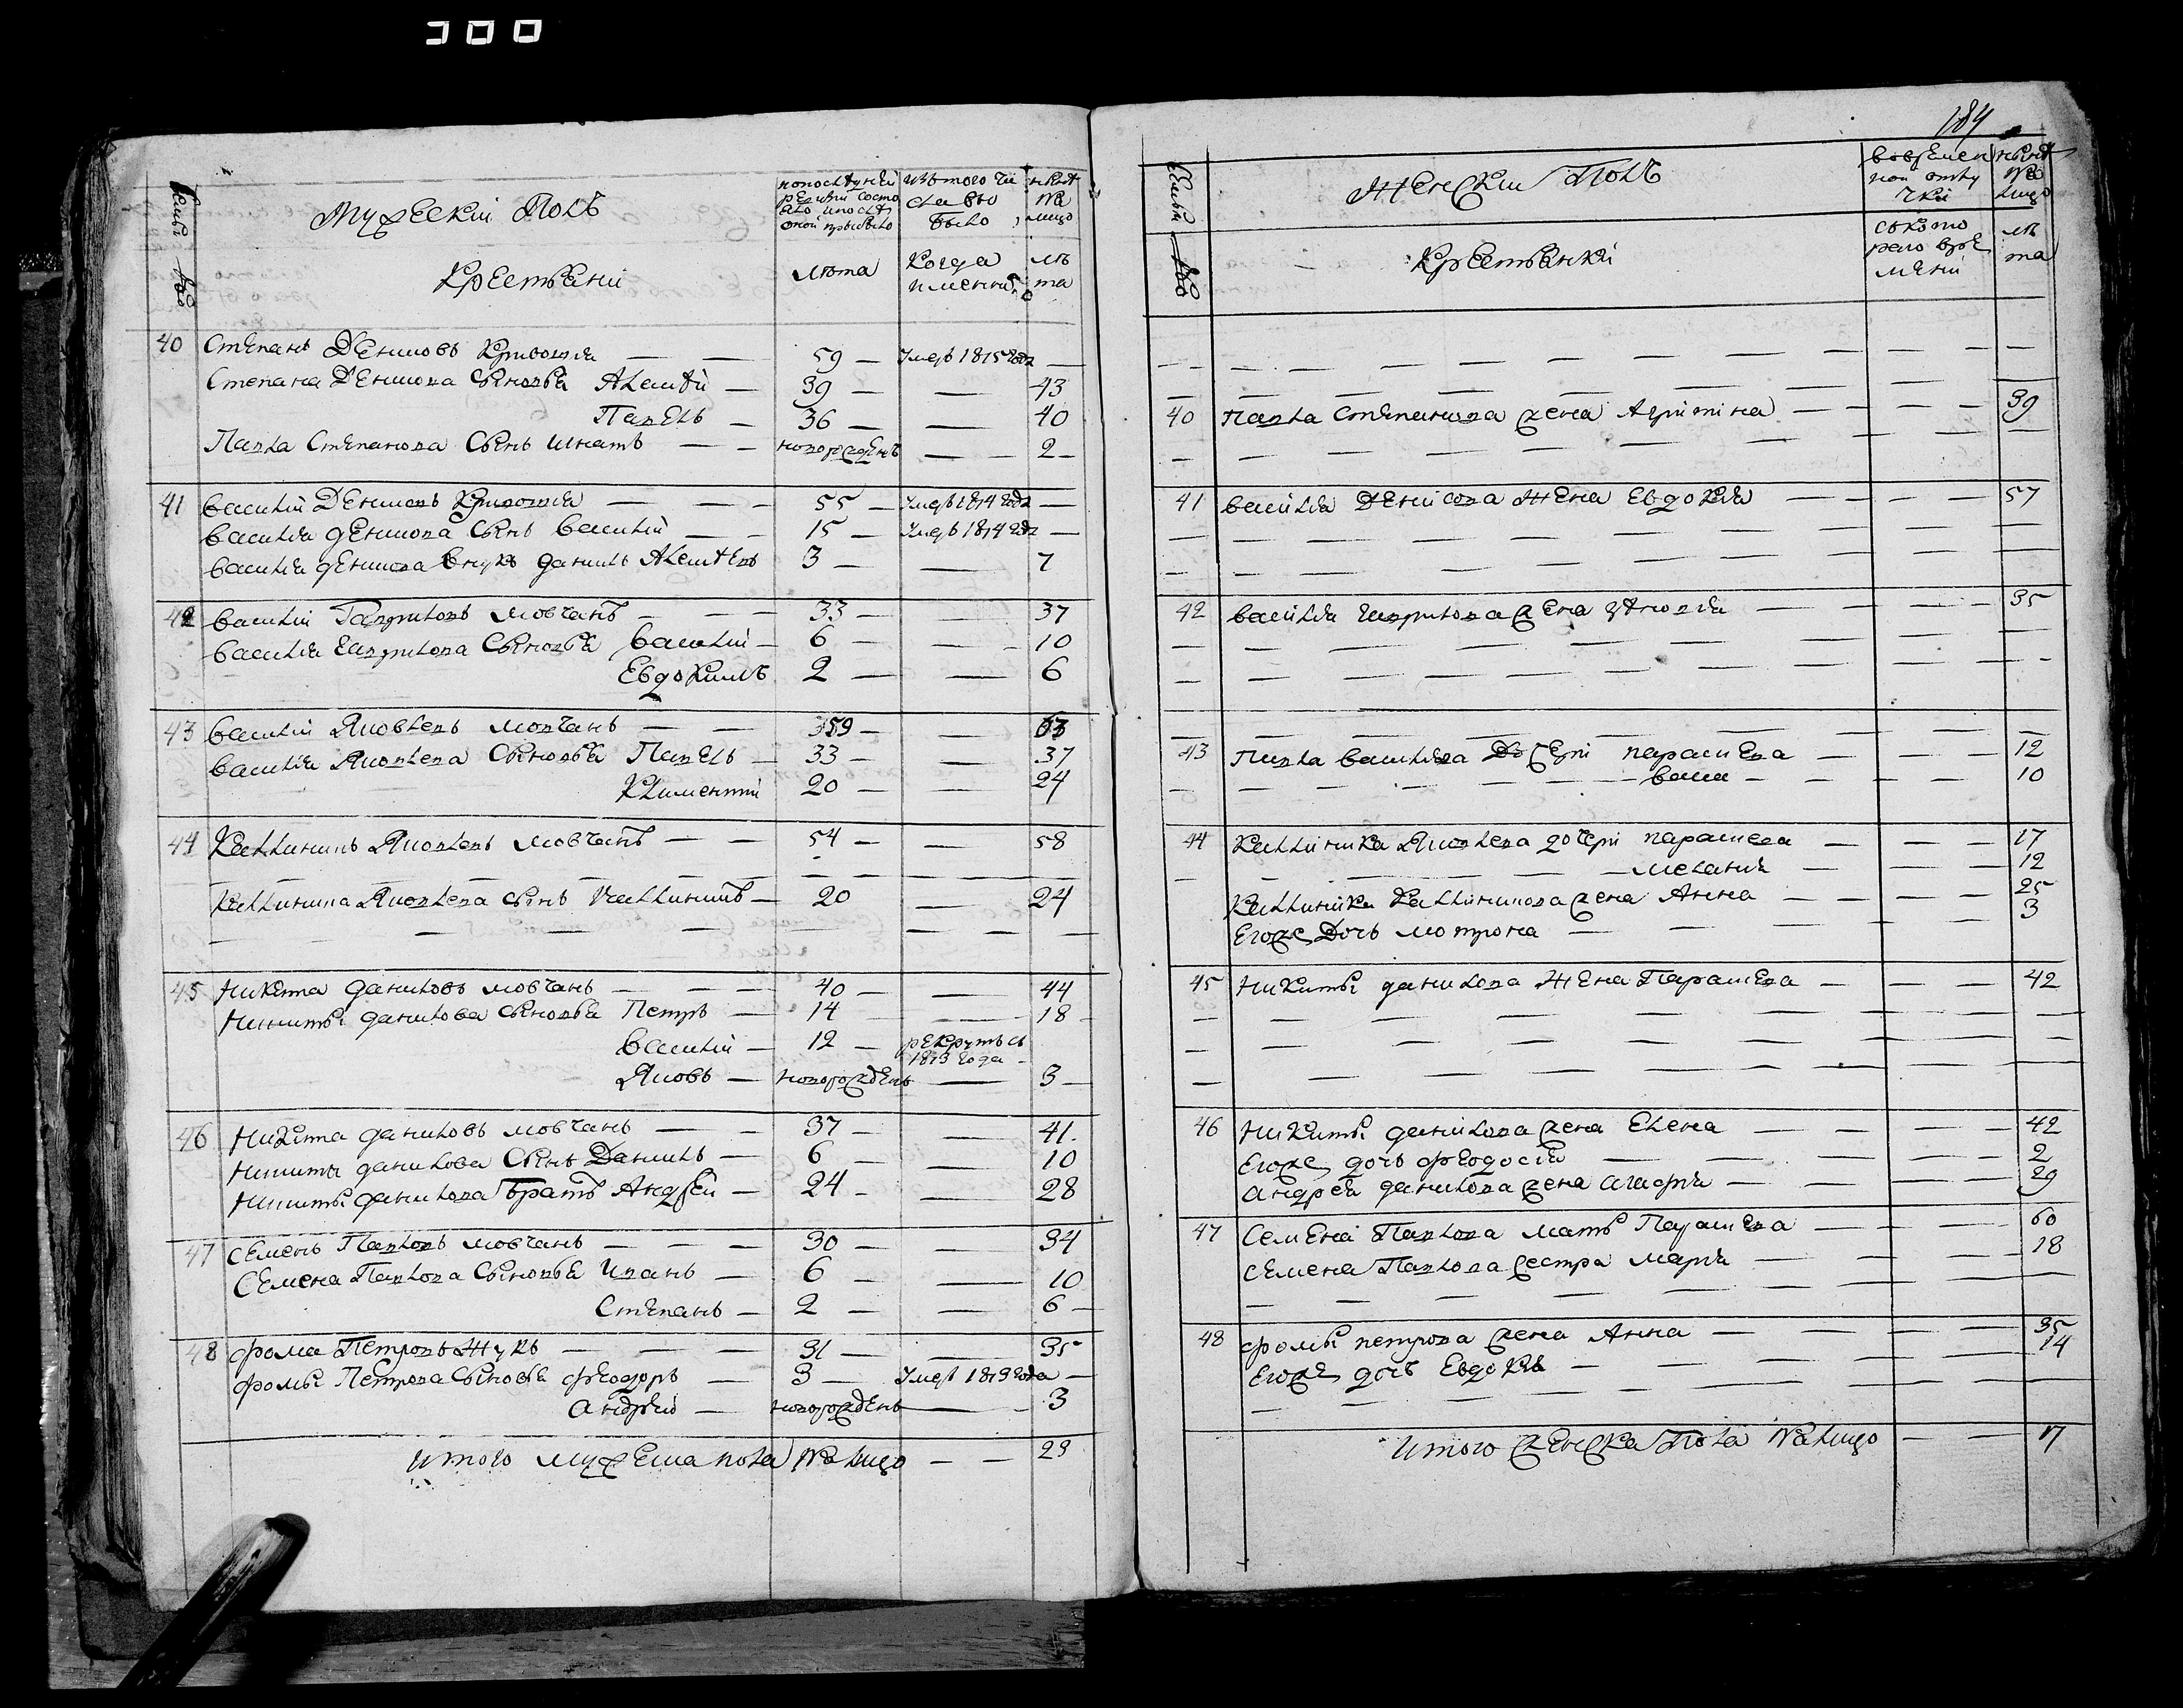 семьи
Мужескій Полъ
Крестьяніи
по последней ревизіи состояло и после оной прибыло
Изъ того числа выбыло
ныне на лицо
лѣта
Когда именно
лѣта
40 Степанъ Денисовъ — — 59 — Умеръ 1815 года —
Степана Денисова Сыновья Алексѣй — 39 — — 43
Павелъ — 36 — — 40
Павла Степанова Сынъ Игнатъ — — новорожденъ — — 2 —
41 Василій Денисовъ — — — 55 — Умеръ 1814 года —
Василья Денисова Сынъ Василій — — 15 — Умеръ 1814 года —
Василья Денисова внукъ Данилъ Алексѣевъ 3 — — 7
42 Василій Гавриловъ Мовчанъ — — — 33 — — 37
Василья Гаврилова Сыновья Василій — 6 — — 10
Евдокимъ 2 — — 6
43 Василій Яковлевъ Мовчанъ — — 59 — — 63
Василья Яковлева Сыновья Павелъ — 33 — — 37
Климентій 20 — — 24
44 Каллиникъ Яковлевъ Мовчанъ — — 54 — — 58
Каллиника Яковлева Сынъ Каллиникъ — 20 — 24
45 Никита Даниловъ Мовчанъ — — — 40 — — 44
Никиты Данилова Сыновья Петръ — 14 — — 18
Василій — 12 — рекрутъ съ 1813 года —
Яковъ — новорожденъ — 3 —
46 Никита Даниловъ Мовчанъ — — 37 — — 41
Никиты Данилова Сынъ Данилъ — 6 — — 10
Никиты Данилова Братъ Андрей — 24 — — 28
47 Семенъ Павловъ Мовчанъ — — — 30 — — 34
Семена Павлова Сыновья Иванъ — 6 — — 10
Степанъ — 2 — — 6 —
48 Фома Петровъ Жукъ — — — 31 — — 35
Фомы Петрова Сыновья Феодоръ — 3 — Умеръ 1813 года —
Андрей — новорожденъ — 3
Итого мужеска пола На лицо — — 29
184
семьи
Женскій Полъ
Крестьянки
во временной отлучки
ныне На лицо
съ котораго времяни
лѣта
40 Павла Степанова жена — — — — 39
41 Василья Денисова Жена Евдокія — — — — 57
42 Василья Гаврилова жена — — — — 35
43 Павла Васильева Дочери Параскева — — — — 12
10
44 Каллиника Яковлева дочери Парасковея — — — 17
Меланія — — — 12
Каллиника Каллиникова жена Анна — — — — 25
Егожъ Дочь Мотрона — — — 3
45 Никиты Данилова Жена Параскева — — — 42
46 Никиты Данилова жена Елена — — — — 42
Егожъ дочь Феодосія — — — 2
Андрея Данилова жена — — — 29
47 Семена Павлова мать Параскева — — — 60
Семена Павлова сестра Марія — — — 18
48 Фомы Петрова жена Анна — — — 35
Егожъ дочь Евдокія — — — 14
Итого женска Пола На лицо — — 17